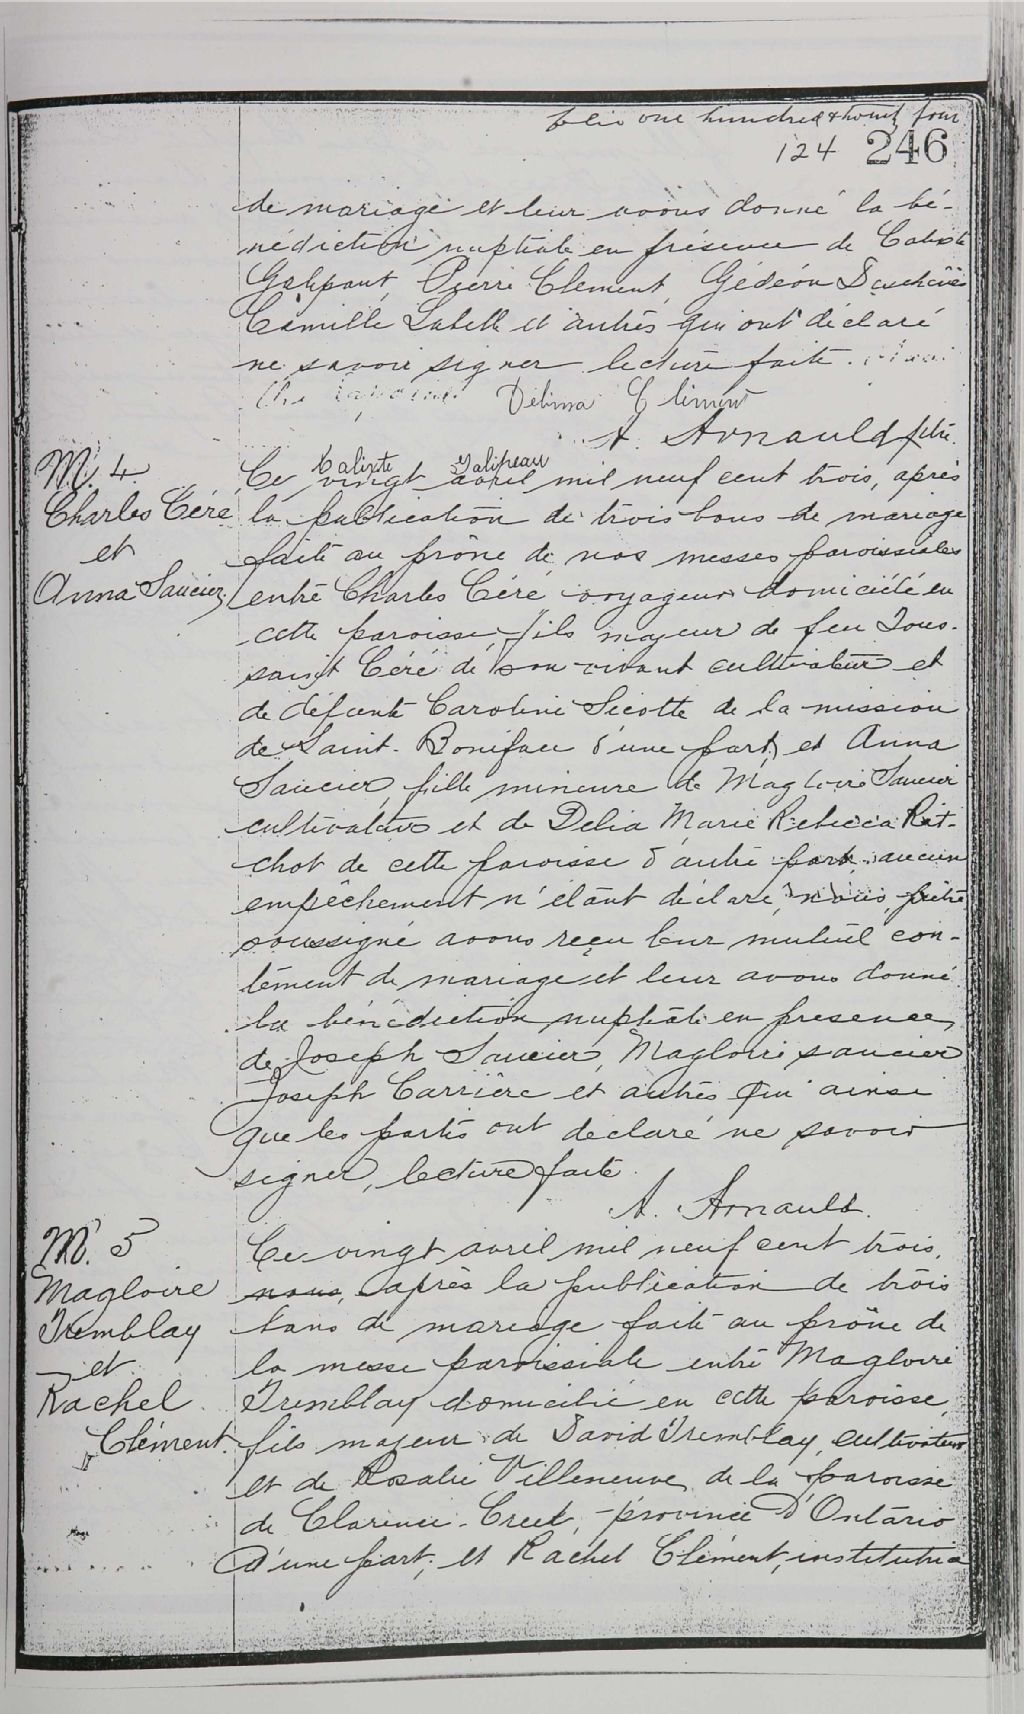 folio one hundred & twenty four
124 246
de mariage et leur avons donné la bé-
nédiction nuptiale en présence de Calixte
Galipaut, Pierre Clément, Gédéon
Camille Labelle et autres qui ont déclaré
ne savoir signer lecture faite.
Délima Clément
A. Arnauld ptre.
Calixte Galipeau
M. 4
Charles Céré
et
Anna Saucier
Ce vingt avril mil neuf cent trois, après
la publication de trois bans de mariage
faite au prône de nos messes paroissiales
entre Charles Céré voyageur domicilié en
cette paroisse, fils majeur de feu Tous-
saint Céré de son vivant cultivateur et
de défunte Caroline Sicotte de la mission
de Saint-Boniface d'une part, et Anna
Saucier, fille mineure de Magloire Saucier
cultivateur et de Delia Marie Rebecca Rit-
chot de cette paroisse d'autre part, aucun
empêchement n'étant déclaré, nous, prêtre
soussigné avons reçu leur mutuel con-
tement de mariage et leur avons donné
la bénédiction nuptiale en présence
de Joseph Saucier, Magloire Saucier
Joseph Carrière et autres qui ainsi
que les partis ont déclaré ne savoir
signer, lecture faite.
A. Arnauld.
M. 5
Magloire
Tremblay
et
Rachel
Clément.
Ce vingt avril mil neuf cent trois,
nous, après la publication de trois
bans de mariage faite au prône de
la messe paroissiale entre Magloire
Tremblay domicilié en cette paroisse,
fils majeur de David Tremblay, cultivateur
et de Rosalie Villeneuve, de la paroisse
de Clarence-Creek, province d'Ontario
d'une part, et Rachel Clément, institutrice